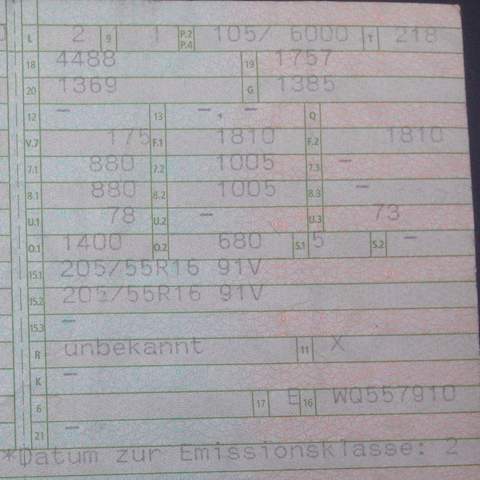 L 2 9 1 P.2 P.4 105/ 6000 T 218
18 4488 19 1757
20 1369 G 1385
12 - 13 -, - Q
V.7 175 F.1 1810 F.2 1810
7.1 880 7.2 1005 7.3 -
8.1 880 8.2 1005 8.3 -
U.1 78 U.2 - U.3 73
O.1 1400 O.2 680 S.1 5 S.2 -
15.1 205/55R16 91V
15.2 205/55R16 91V
15.3 -
R unbekannt 11 X
K -
6 17 E 16 WQ557910
21 -
*Datum zur Emissionsklasse: 2